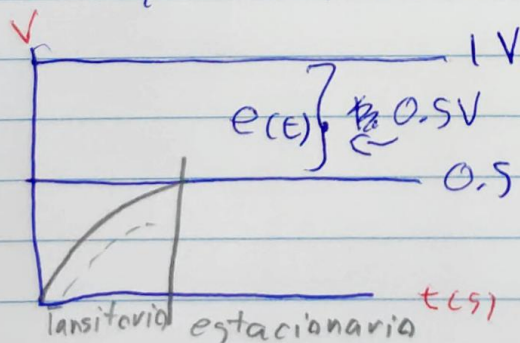 V
1 V
e(t) 0.5V
0.5
t(s)
Tansitorio estacionario